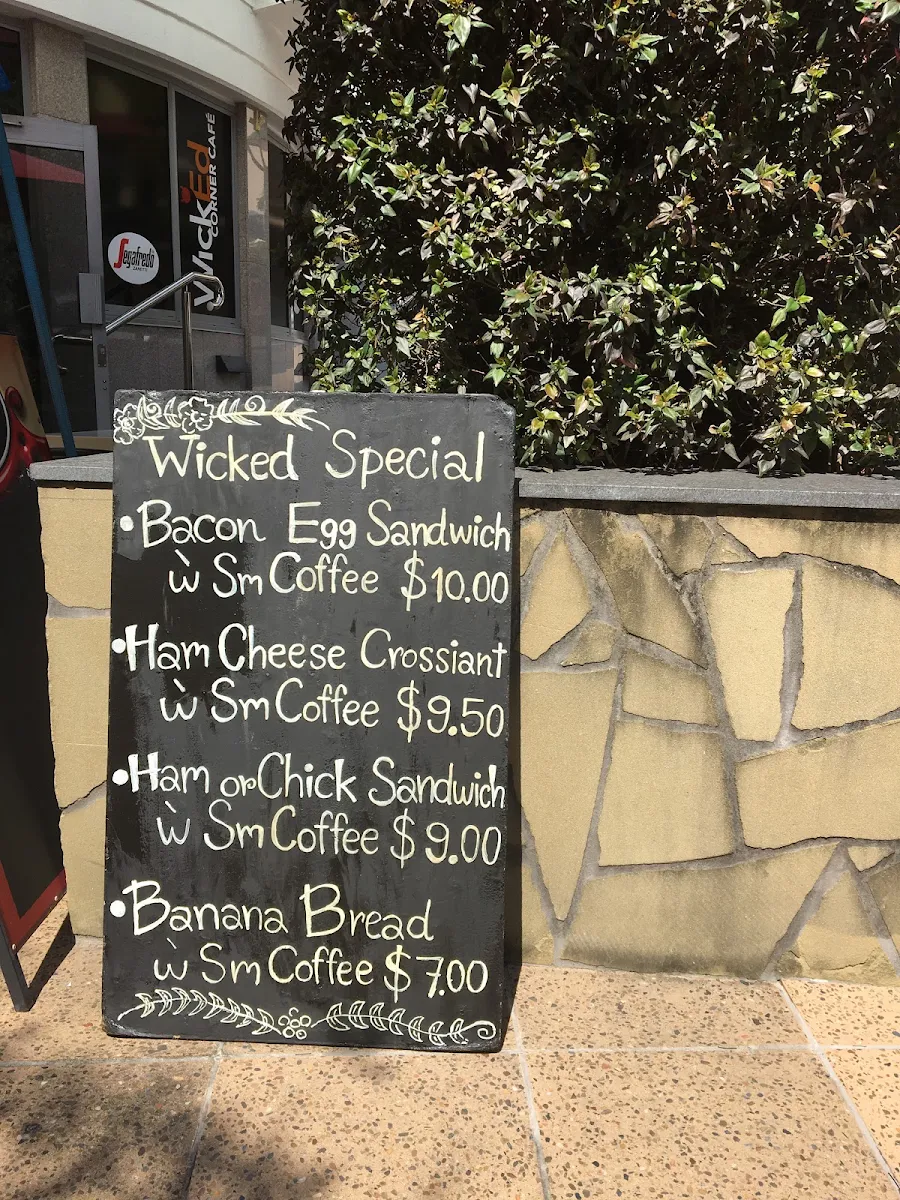 WickEd
CORNER CAFÉ
Segafredo
ZANETTI
Wicked Special
• Bacon Egg Sandwich
ẁ Sm Coffee $10.00
• Ham Cheese Crossiant
ẁ Sm Coffee $9.50
• Ham or Chick Sandwich
ẁ Sm Coffee $9.00
• Banana Bread
ẁ Sm Coffee $7.00